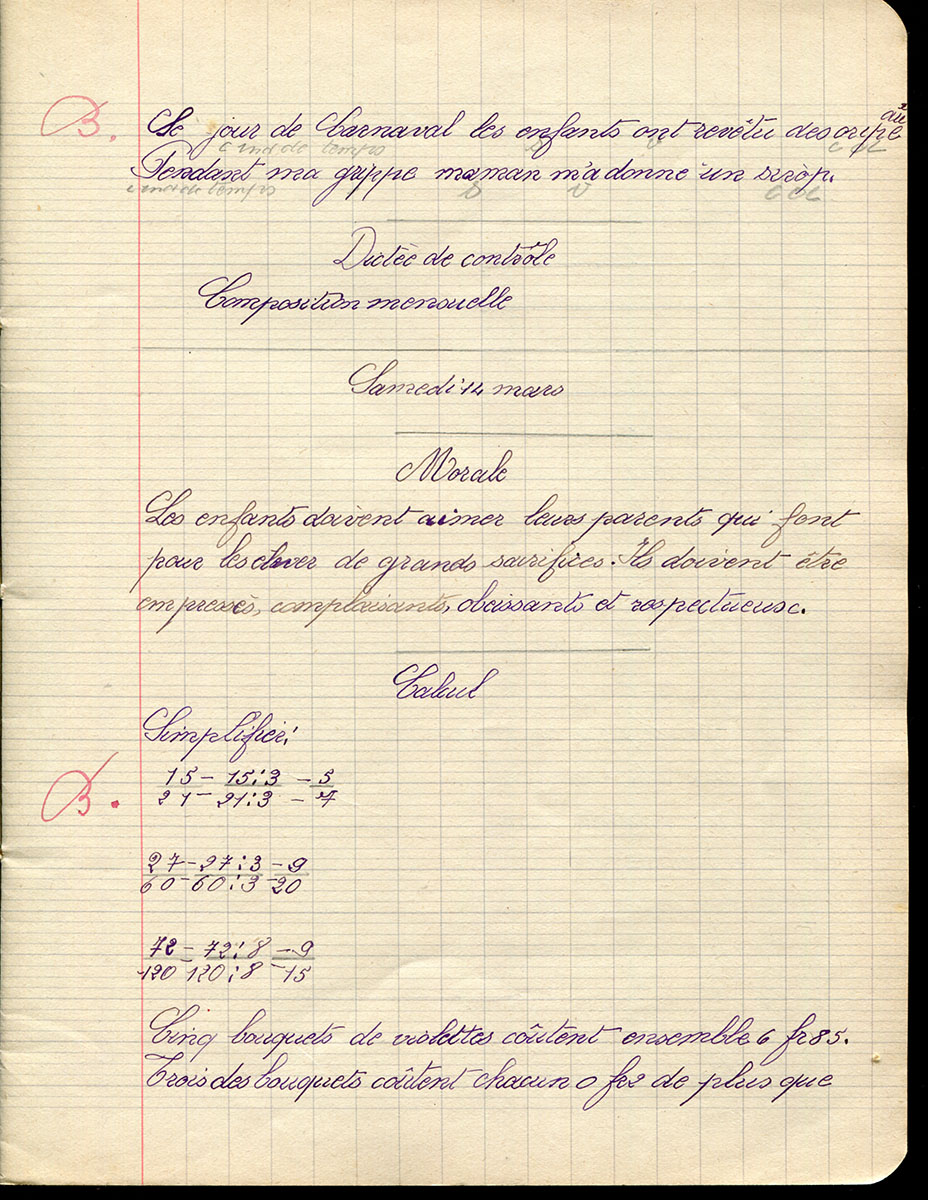 B. Le jour de Carnaval les enfants ont revêtu des oripeaux
c ind de temps s v c od
Pendant ma grippe maman m'a donné un sirop.
c ind de temps s v c od
Dictée de contrôle
Composition mensuelle
Samedi 14 mars
Morale
Les enfants doivent aimer leurs parents qui font
pour les élever de grands sacrifices. Ils doivent être
empressés, complaisants, obeissants et respectueux.
Calcul
Simplifier:
B. 15 = 15:3 = 5
21 = 21:3 = 7
27 = 27:3 = 9
60 = 60:3 = 20
72 = 72:8 = 9
120 = 120:8 = 15
Cinq bouquets de violettes coûtent ensemble 6 fr 85.
Trois des bouquets coûtent chacun 0 fr 2 de plus que